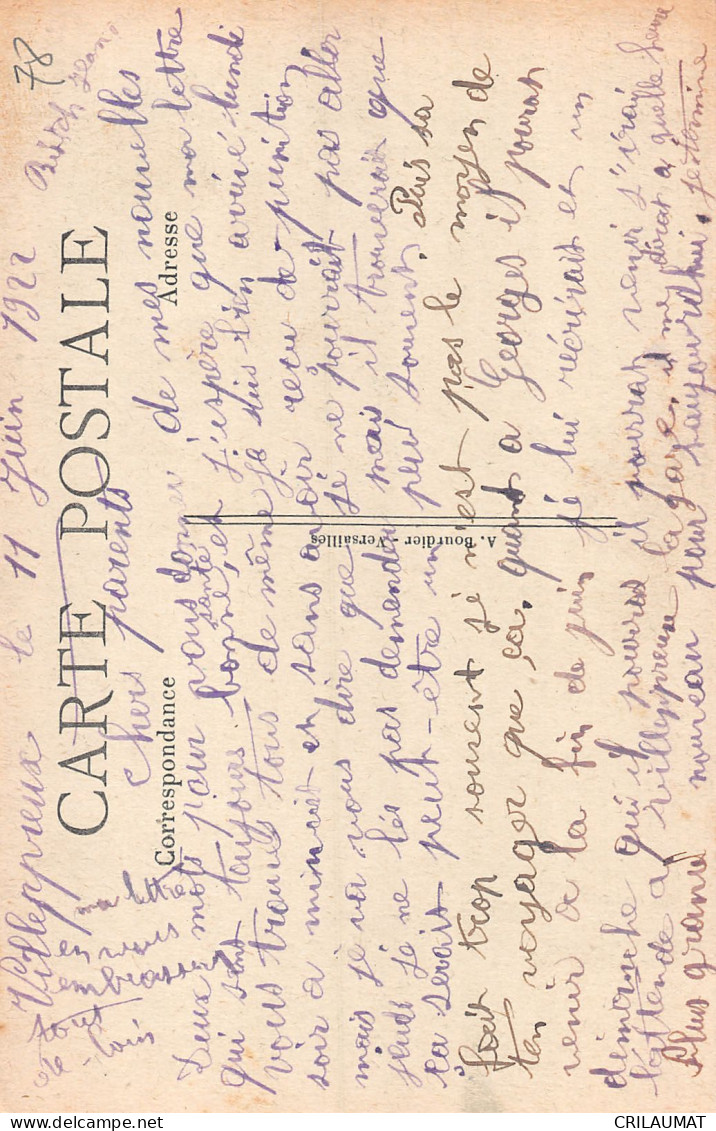 78
Villeppreux le 11 Juin 1922
CARTE POSTALE
Chers parents
Correspondance
Adresse
A. Bourdier - Versailles
Deux mots pour vous donner de mes nouvelles
qui sont toujours bonne, et j'espère que ma lettre
santé
vous trouve tous de même je suis bien arrivé lundi
soir à minuit et sans avoir reçu de punition
mais je va vous dire que je ne pourrait pas aller
jeudi je ne les pas demender mais il trouverait que
ça serait peut-être un peu souvent. Puis sa
fait trop souvent je n'est pas le moyen de
ten voyager que ça, quant a Georges il pourrat
venir a la fin de juin je lui récrirait et un
dimanche qu'il pourras il pourrat venir j'irai
l'attende a Villeppreux la gare, il me dirat a quelle heure
Plus grand nouveau pour aujourd'hui, je termine
ma lettre
en vous
embrassent
tout
de loin
CRILAUMAT